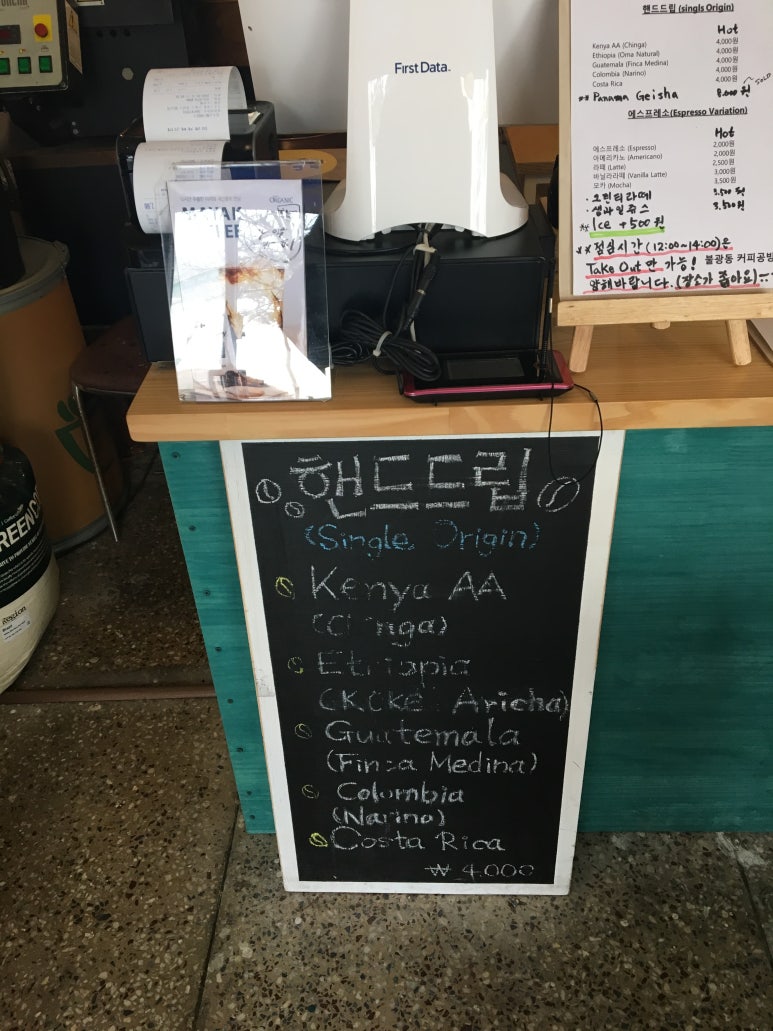 First Data.
ORGANIC
핸드드립 (singls Origin)
Hot
Kenya AA (Chinga) 4,000원
Ethiopia (Oma Natural) 4,000원
Guatemala (Finca Medina) 4,000원
Colombia (Narino) 4,000원
Costa Rica 4,000원
** Panama Geisha 8.000원 SOLD
에스프레소(Espresso Variation)
Hot
에스프레소 (Espresso) 2,000원
아메리카노 (Americano) 2,000원
라떼 (Latte) 2,500원
바닐라라떼 (Vanilla Latte) 3,000원
모카 (Mocha) 3,500원
· 오틴티라떼 3.500원
· 생과일쥬스 3,500원
* Ice +500원
** 점심시간 (12:00~14:00)은
Take Out 만 가능! 불광동 커피공방
양해바랍니다. (장소가 좁아요)
핸드드립
(Single Origin)
Kenya AA
(Chinga)
Ethiopia
Aricha)
Guatemala
(Finca Medina)
Colombia
(Narino)
Costa Rica
₩ 4.000